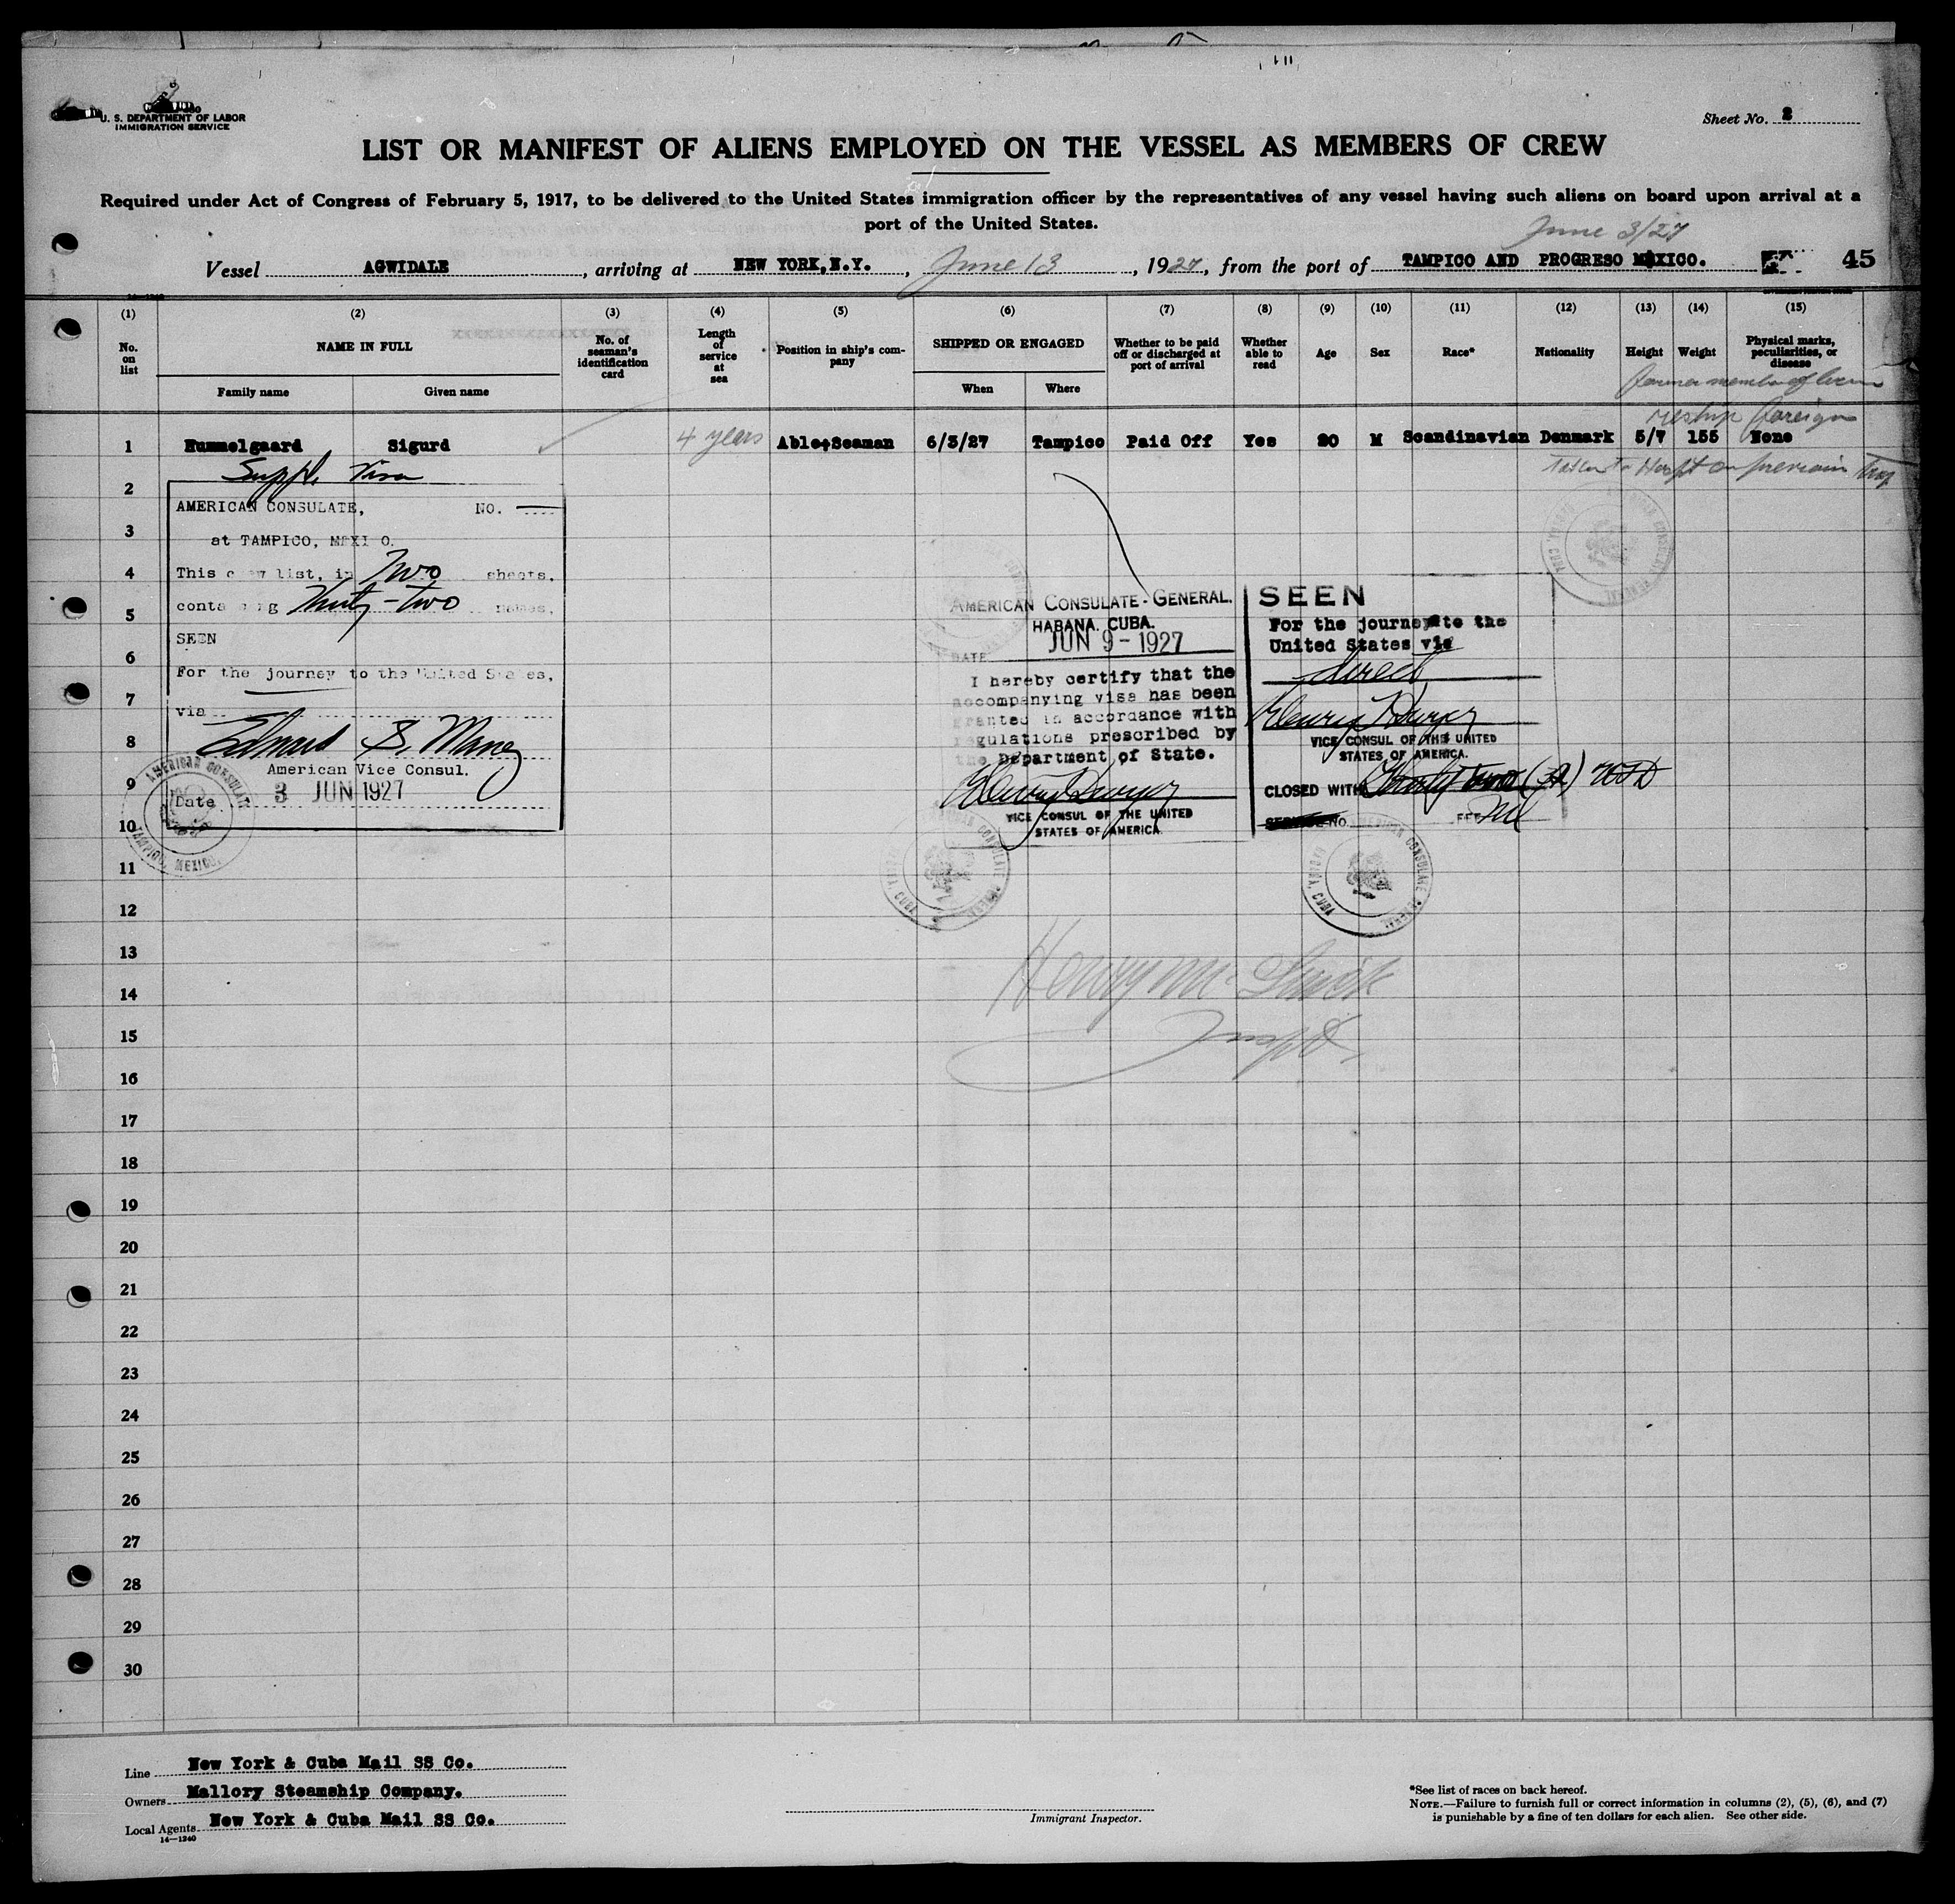 U. S. DEPARTMENT OF LABOR
IMMIGRATION SERVICE
Sheet No. 2
LIST OR MANIFEST OF ALIENS EMPLOYED ON THE VESSEL AS MEMBERS OF CREW
Required under Act of Congress of February 5, 1917, to be delivered to the United States immigration officer by the representatives of any vessel having such aliens on board upon arrival at a
port of the United States.
June 3/27
Vessel AGWIDALE, arriving at NEW YORK, N.Y., June 13, 1927, from the port of TAMPICO AND PROGRESO MEXICO. 45
(1) (2) (3) (4) (5) (6) (7) (8) (9) (10) (11) (12) (13) (14) (15)
No. on list
NAME IN FULL
Family name Given name
No. of seaman's identification card
Length of service at sea
Position in ship's company
SHIPPED OR ENGAGED
When Where
Whether to be paid off or discharged at port of arrival
Whether able to read
Age
Sex
Race*
Nationality
Height
Weight
Physical marks, peculiarities, or disease
former member of crew
reship foreign
1 Hummelgaard Sigurd 4 years Able Seaman 6/3/27 Tampico Paid Off Yes 20 M Scandinavian Denmark 5/7 155 None
taken to Hospt on previous trip
Suppl. Visa
2
AMERICAN CONSULATE, NO.
3
at TAMPICO, MEXI O.
4
This crew list, in Two sheets,
5
containing Thirty-two names.
SEEN
6
For the journey to the United States,
7
via
8
Edward S. Maney
American Vice Consul.
9
Date 3 JUN 1927
10
AMERICAN CONSULATE
TAMPICO, MEXICO.
AMERICAN CONSULATE-GENERAL.
HABANA. CUBA.
JUN 9-1927
DATE
I hereby certify that the
accompanying visa has been
granted in accordance with
regulations prescribed by
the Department of State.
VICE CONSUL OF THE UNITED
STATES OF AMERICA.
SEEN
For the journey to the
United States via
direct
VICE CONSUL OF THE UNITED
STATES OF AMERICA.
CLOSED WITH Thirty two (32)
SERVICE NO. FEE Nil
AMERICAN CONSULATE GENERAL
HABANA, CUBA
11
12
13
Henry Mc
14
15
Inspt.
16
17
18
19
20
21
22
23
24
25
26
27
28
29
30
Line New York & Cuba Mail SS Co.
Owners Mallory Steamship Company.
Local Agents New York & Cuba Mail SS Co.
14—1240
Immigrant Inspector.
*See list of races on back hereof.
NOTE.—Failure to furnish full or correct information in columns (2), (5), (6), and (7)
is punishable by a fine of ten dollars for each alien. See other side.